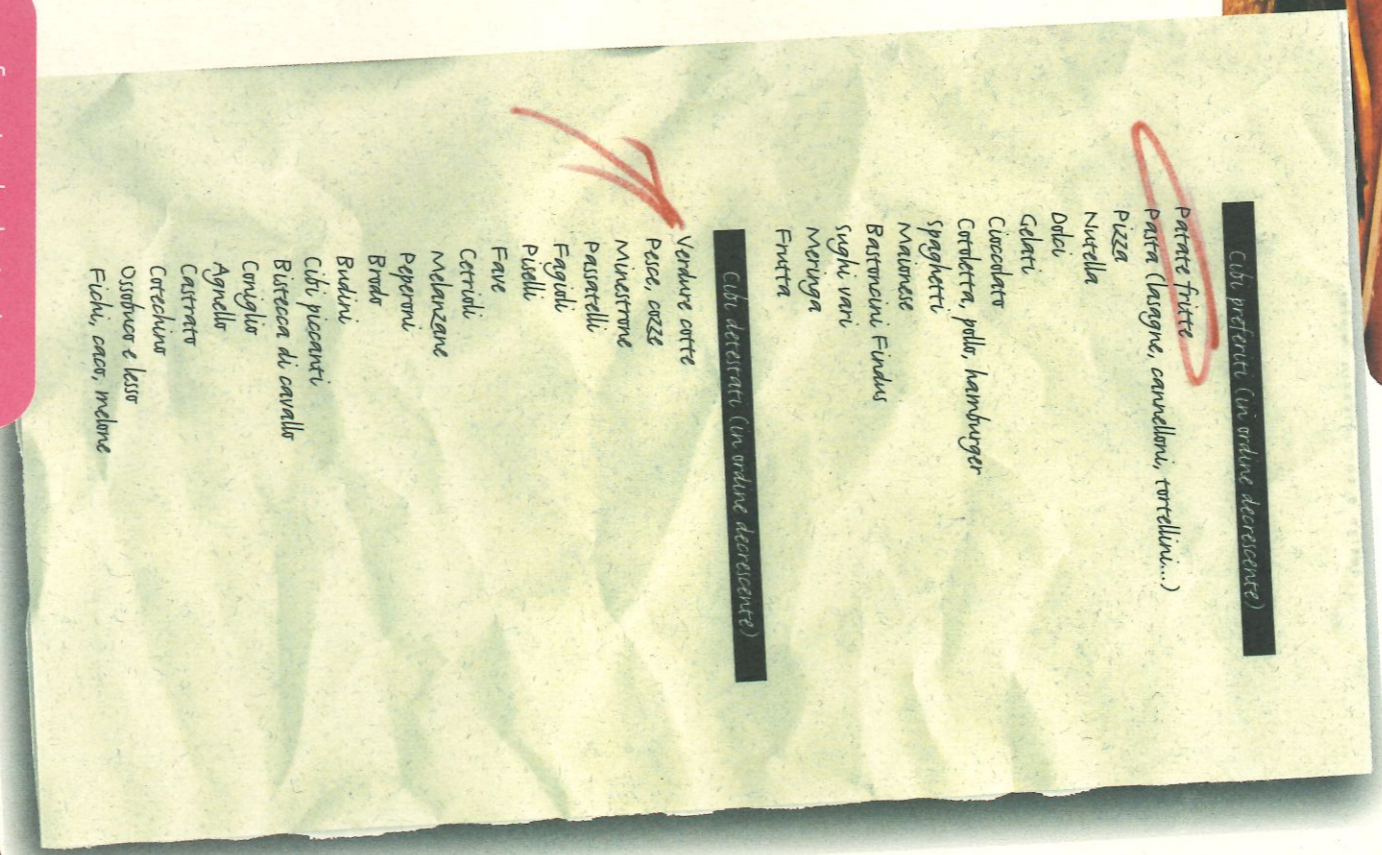 Cibi preferiti (in ordine decrescente)
Patate fritte
Pasta (lasagne, cannelloni, tortellini...)
Pizza
Nutella
Dolci
Gelati
Cioccolato
Cotoletta, pollo, hamburger
Spaghetti
Maionese
Bastoncini Findus
Sughi vari
Meringa
Frutta
Cibi detestati (in ordine decrescente)
Verdure cotte
Pesce, cozze
Minestrone
Passatelli
Fagioli
Piselli
Fave
Cetrioli
Melanzane
Peperoni
Brodo
Budini
Cibi piccanti
Bistecca di cavallo
Coniglio
Agnello
Castrato
Cotechino
Ossobuco e lesso
Fichi, caco, melone